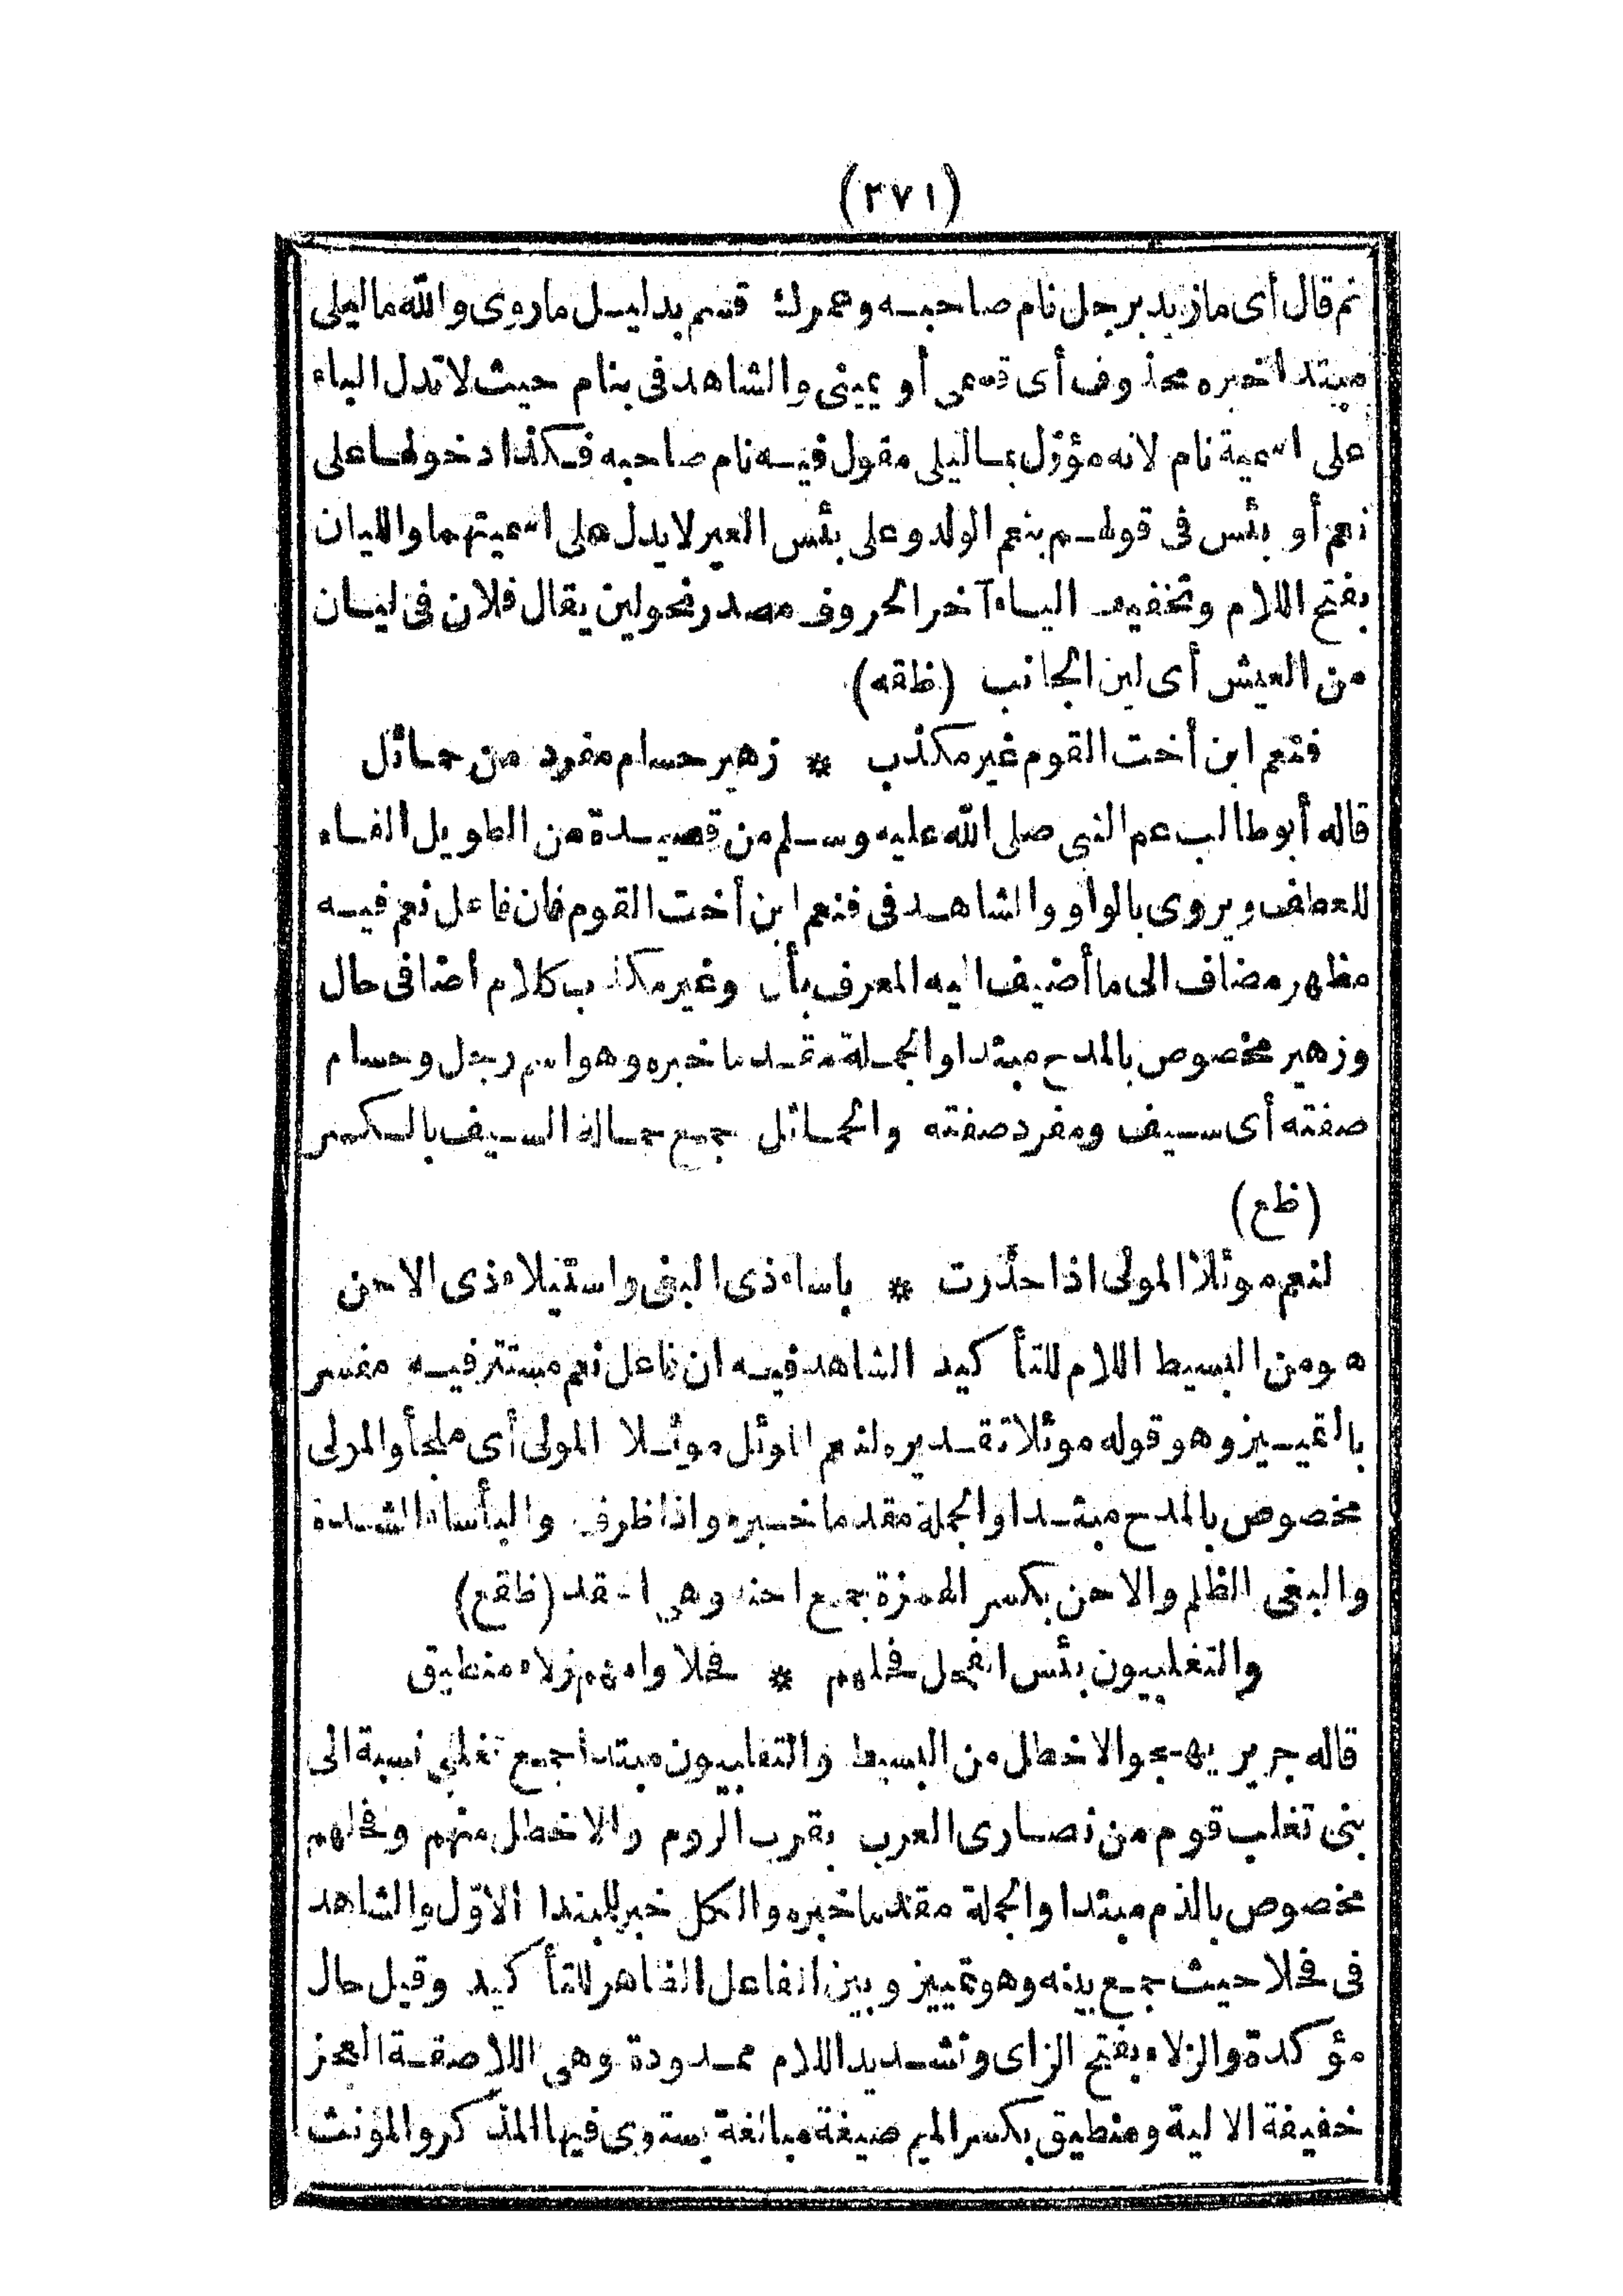 (٢٧١)
ثم قال أى مازيد برجل نام صاحبه وعمرك قسم بدليل ماروى والله ماليلى
مبتدا خبره محذوف أى قسمى أو يمينى والشاهد فى بنام حيث لا تدل الباء
على اسمية نام لانه مؤول بماليلى مقول فيه نام صاحبه فكذا دخولها على
نعم أو بئس فى قولهم بنعم الولد وعلى بئس العير لا يدل على اسميتهما والليان
بفتح اللام وتخفيف الياء آخر الحروف مصدر فحولين يقال فلان فى ليان
من العيش أى لين الجانب (ظقه)
فنعم ابن أخت القوم غير مكذب * زهير حسام مفرد من حمائل
قاله أبو طالب عم النبي صلى الله عليه وسلم من قصيدة من الطويل الفاء
للعطف ويروى بالواو والشاهد فى فنعم ابن أخت القوم فان فاعل نعم فيه
مظهر مضاف الى ما أضيف اليه المعرف بأل وغير مكذب كلام أضافى حال
وزهير مخصوص بالمدح مبتدا والجملة مقدما خبره وهو اسم رجل وحسام
صفته أى سيف ومفرد صفته والحمائل جمع حمالة السيف بالكسر
(ظع)
لنعم موئلا المولى اذا حذرت * باساء ذى البغى واستيلاء ذى الاحن
هو من البسيط اللام للتأكيد الشاهد فيه ان فاعل نعم مستتر فيه مفسر
بالتمييز وهو قوله موئلا تقديره لنعم الموئل موئلا المولى أى ملجأ والمولى
مخصوص بالمدح مبتدا والجملة مقدما خبره واذا ظرف والبأساء الشدة
والبغى الظلم والاحن بكسر الهمزة جمع احنه وهى الحقد (ظقع)
والتغلبيون بئس الفحل فحلهم * فحلا وامهم زلاء منطيق
قاله جرير يهجو الاخطل من البسيط والتغلبيون مبتدا جمع تغلبي نسبة الى
بنى تغلب قوم من نصارى العرب بقرب الروم والاخطل منهم وفحلهم
مخصوص بالذم مبتدا والجملة مقدما خبره والكل خبر للبتدا الاول والشاهد
فى فحلا حيث جمع بينه وهو تمييز وبين الفاعل الظاهر للتأكيد وقيل حال
مؤكدة والزلاء بفتح الزاى وتشديد اللام ممدودة وهى اللاصقة العجز
خفيفة الالية ومنطيق بكسر الميم صيغة مبالغة يستوى فيها المذكر والمؤنث